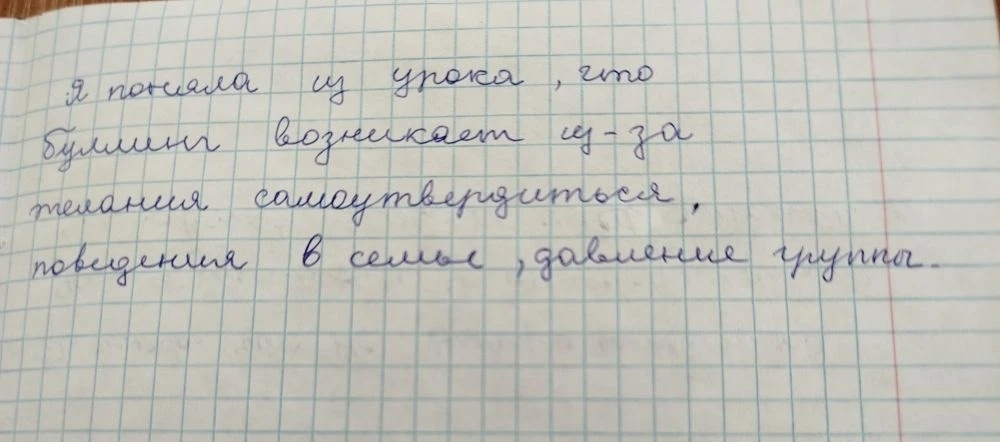 Я поняла из урока, что
буллинг возникает из-за
желания самоутвердиться,
поведения в семье, давление группы.